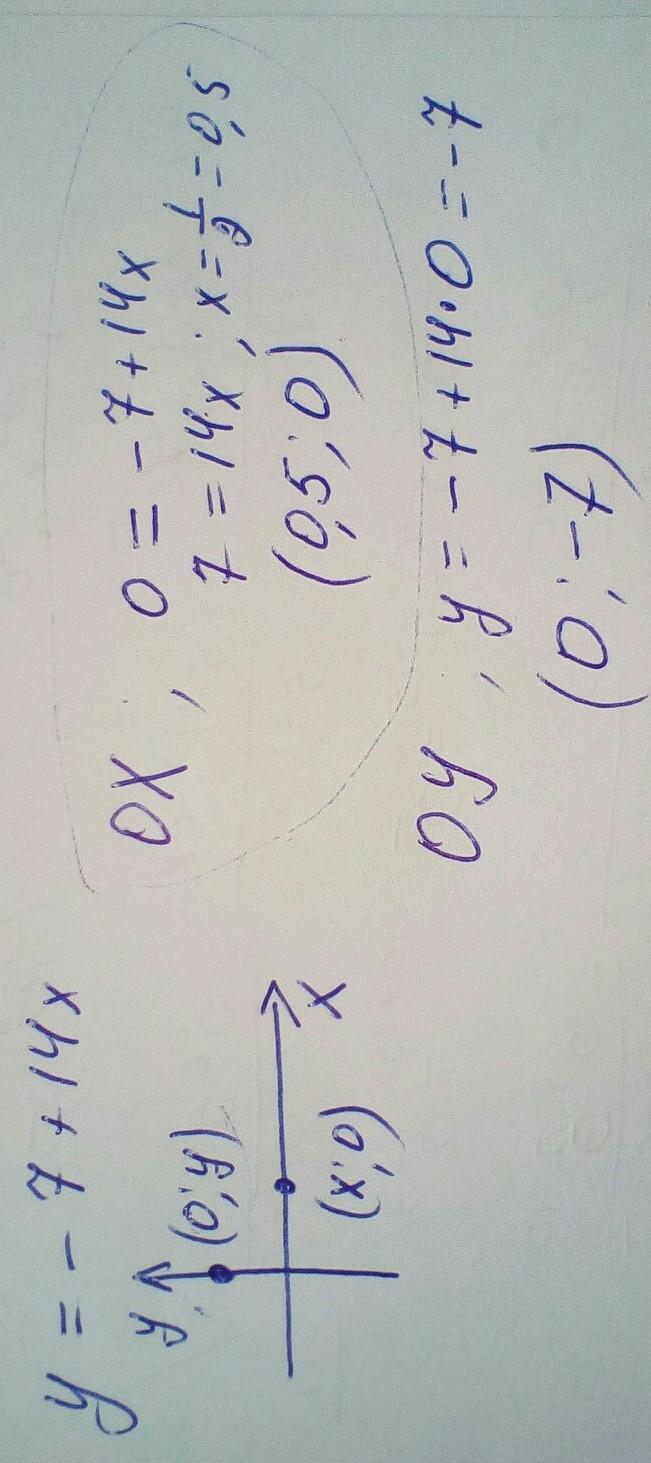 y = - 7 + 14x
y
(0; y)
x
(x; 0)
Ox, 0 = - 7 + 14x
7 = 14x; x = 1/2 = 0,5
(0,5; 0)
Oy, y = - 7 + 14·0 = - 7
(0; - 7)